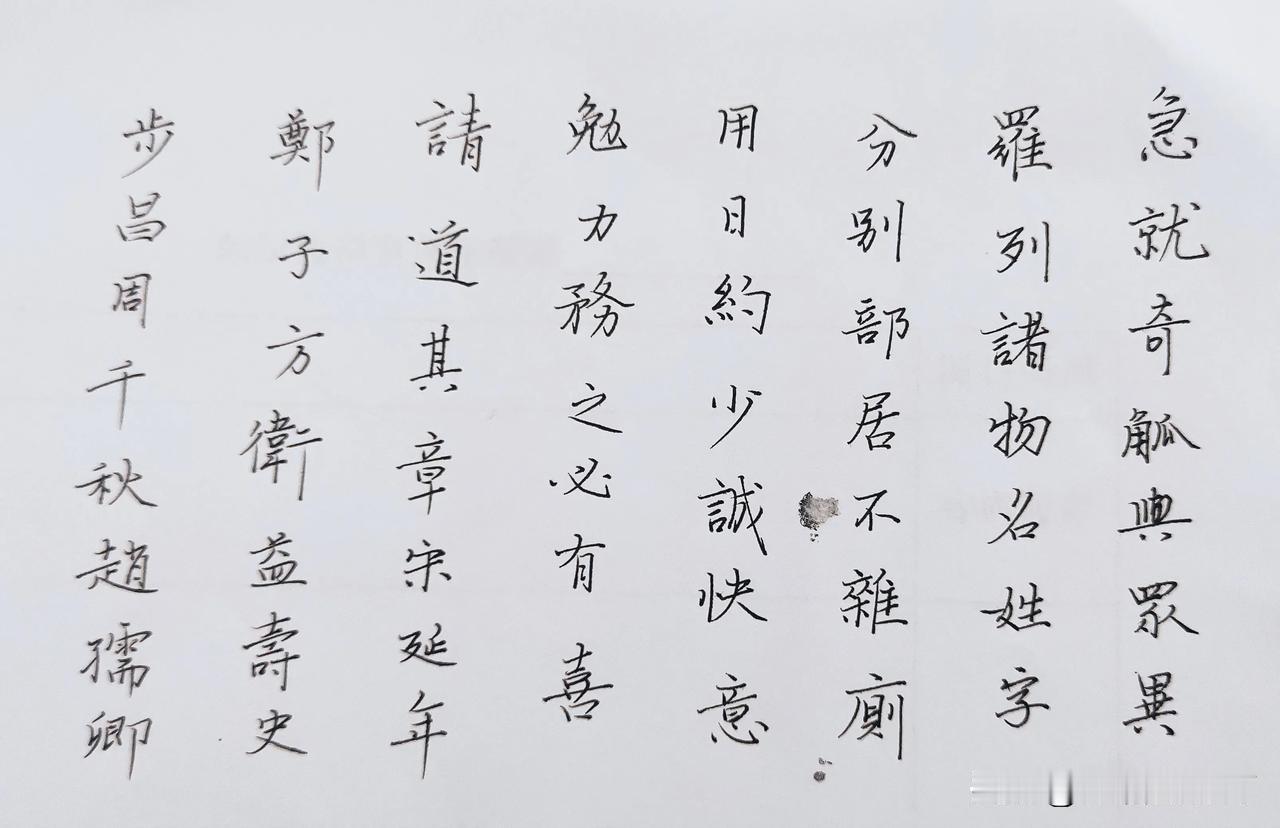 急就奇觚與眾異
羅列諸物名姓字
分別部居不雜廁
用日約少誠快意
勉力務之必有喜
請道其章宋延年
鄭子方衛益壽史
步昌周千秋趙孺卿